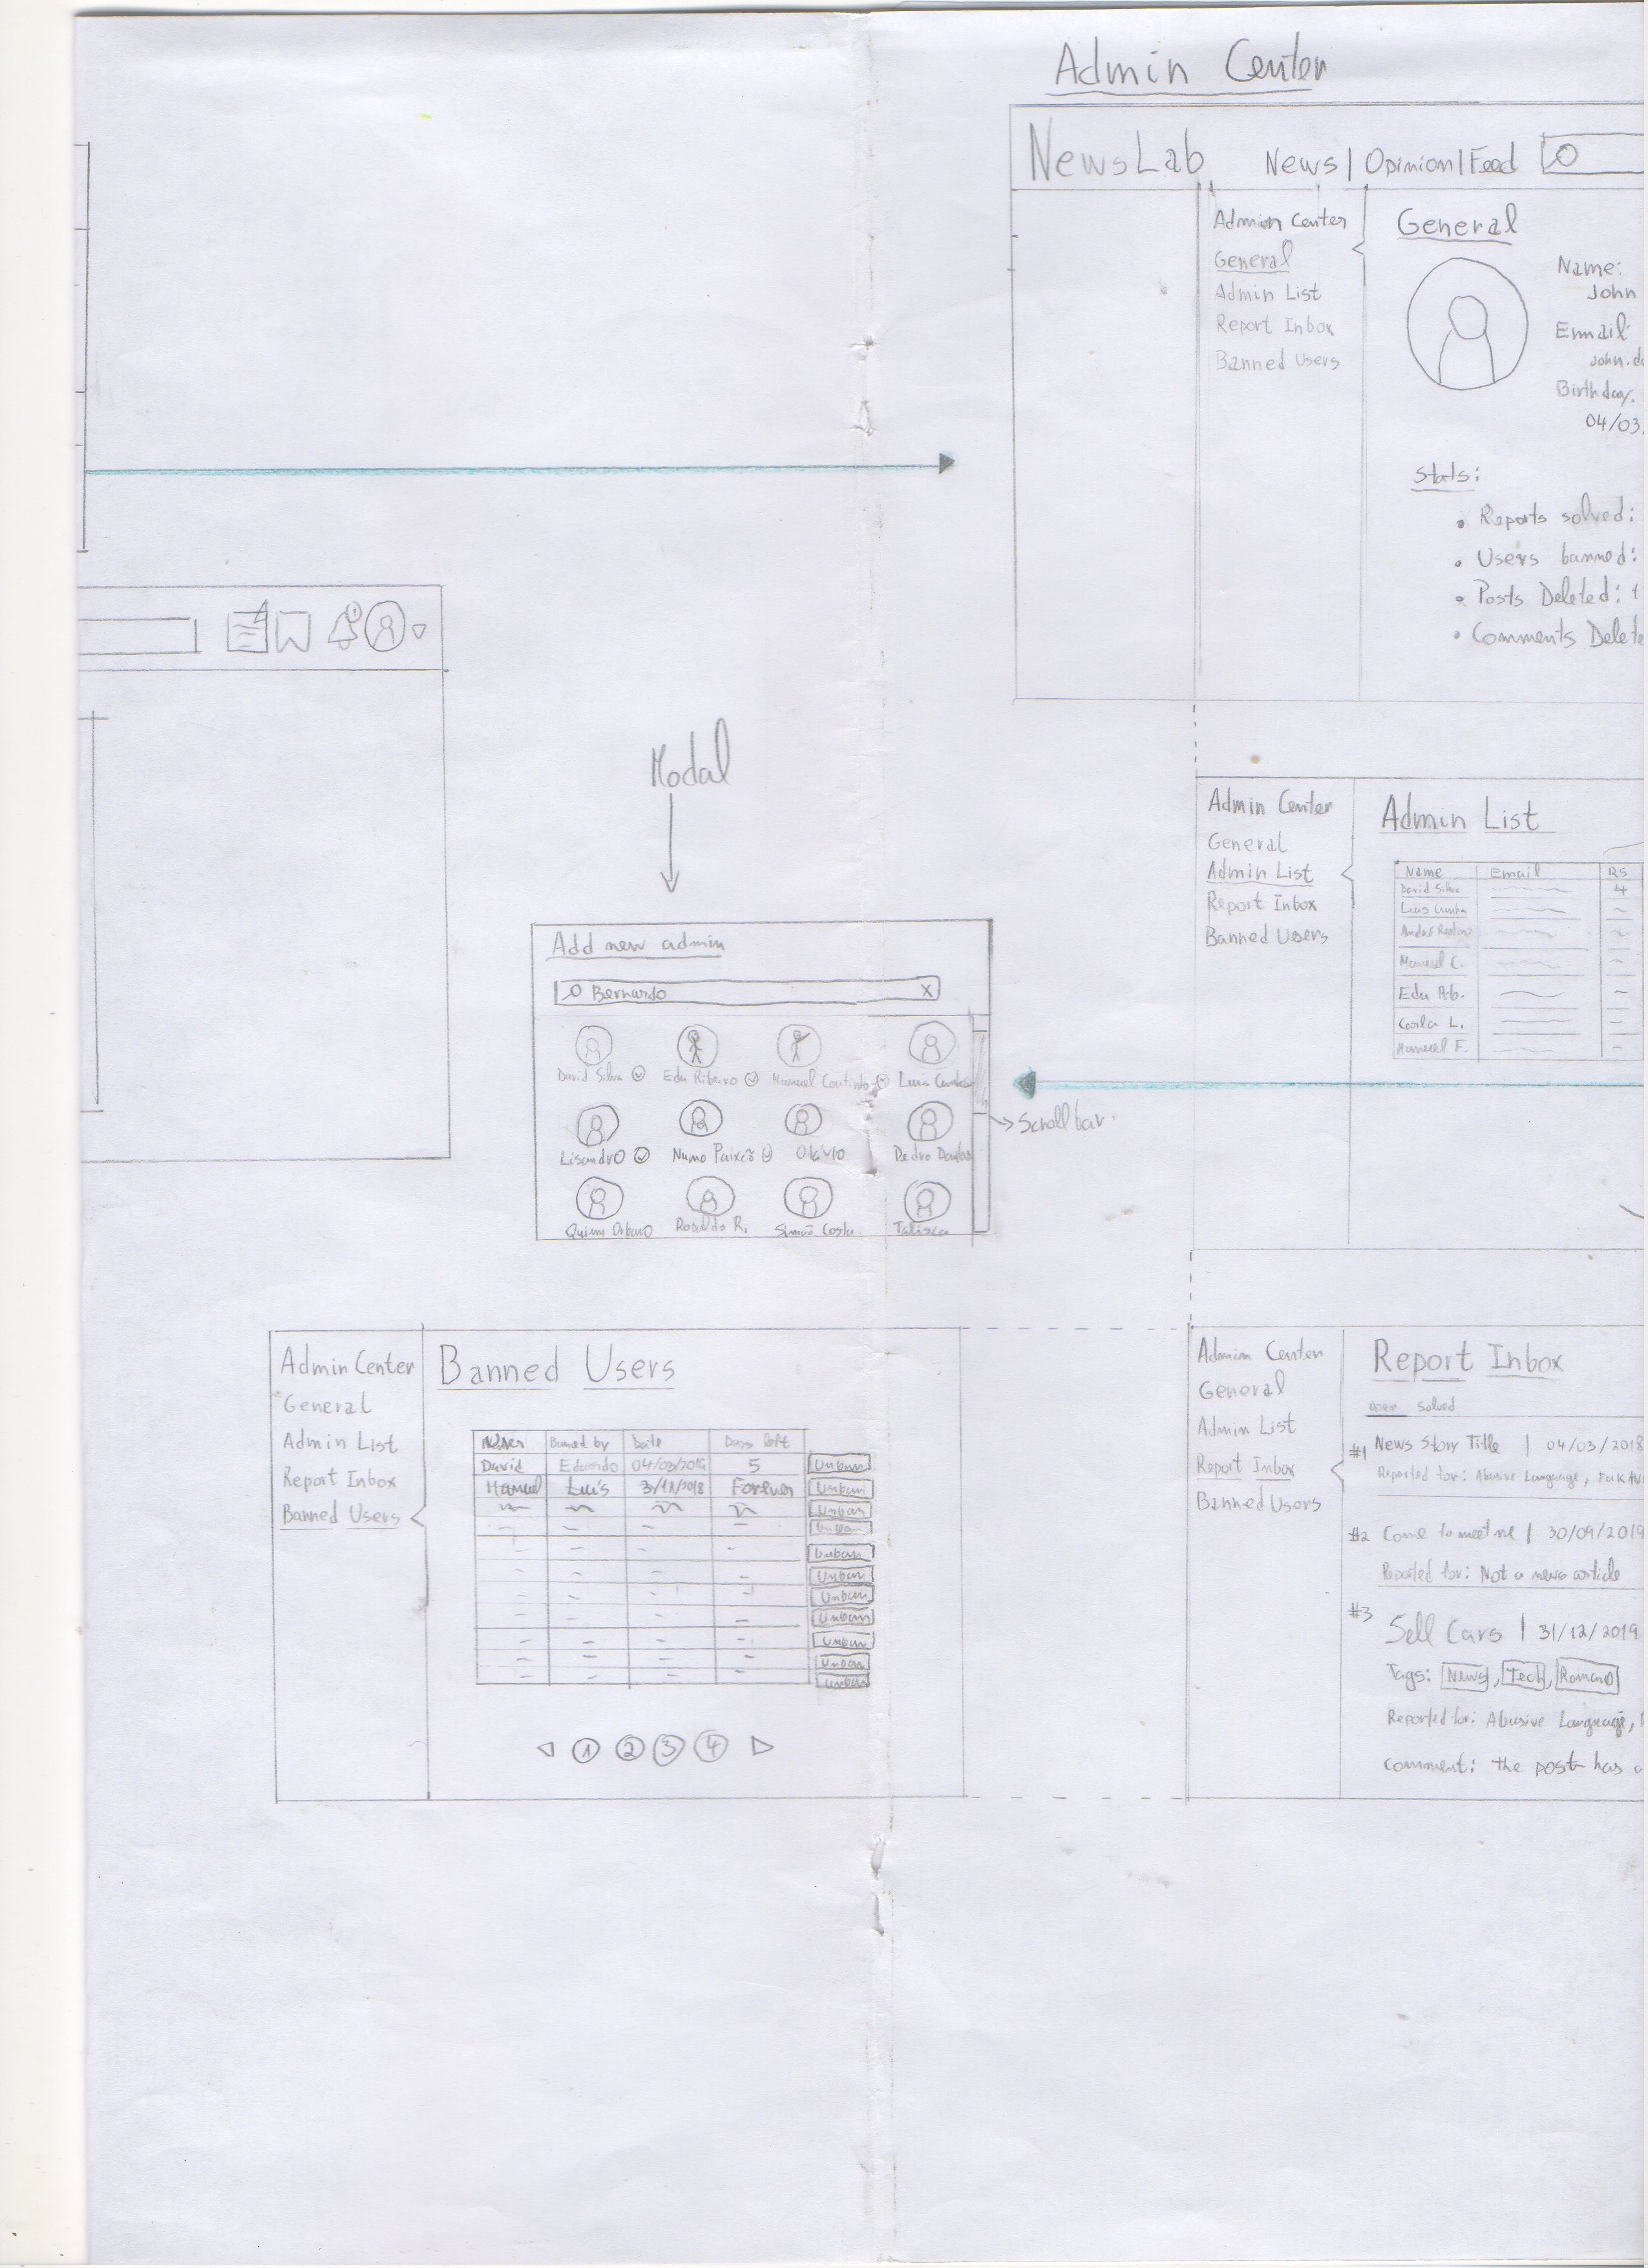 Admin Center
NewsLab News | Opinion | Feed
Admin Center
General
Admin List
Report Inbox
Banned Users
General
Name:
John
Email:
John.d
Birthday.
04/03.
Stats:
• Reports solved:
• Users banned:
• Posts Deleted:
• Comments Delete
Modal
Add new admin
Bernardo X
David Silva Edu Ribeiro Manuel Coutinho Luis Cunha
Lisandro Nuno Paixão Otávio Pedro
Quim Ronaldo R. Simão Costa Talisca
Scroll bar
Admin Center
General
Admin List
Report Inbox
Banned Users
Admin List
Name Email RS
David Silva 4
Luis Cunha
André
Manuel C.
Edu Rib.
Carla L.
Manuel F.
Admin Center
General
Admin List
Report Inbox
Banned Users
Banned Users
User Banned by Date Days left
David Eduardo 04/03/2019 5 Unban
Manuel Luís 31/12/2018 Forever Unban
Unban
Unban
Unban
Unban
Unban
Unban
Unban
Unban
Unban
1 2 3 4
Admin Center
General
Admin List
Report Inbox
Banned Users
Report Inbox
open solved
#1 News Story Title | 04/03/2018
Reported for: Abusive Language,
#2 Come to meet me | 30/09/2019
Reported for: Not a news article
#3 Sell Cars | 31/12/2019
Tags: News, Tech, Romano
Reported for: Abusive Language,
Comment: the post has